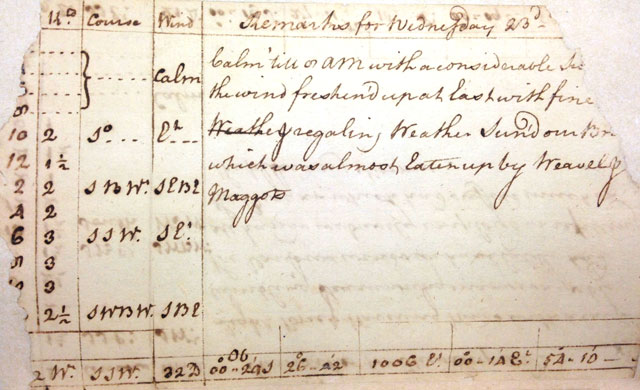 Kn Course Wind Remarks for Wednesday 23d
Calm till 8 AM with a considerable
Calm
the wind freshen'd up at East with fine
8
10 2 So Et Weather regaling Weather Sun'd our
12 1½ which was almost Eaten up by Weavel &
2 2 SBW. SEBE Maggots
4 2
6 3 SSW. SEt
8 3
3
2½ SWBW. SBE
2 W. SSW. 32 00--29S 26--22 1006 Et 00--14Et 54--10--